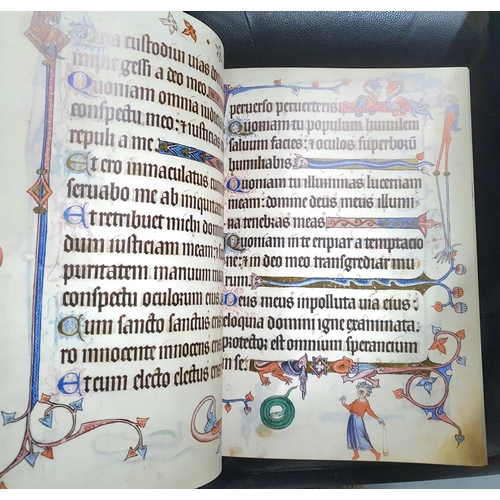 Quia custodiui uias domini
impie gessi a deo meo
Quoniam omnia iudicia
conspectu meo: & iusticias
repuli a me
Et ero immaculatus cum
seruabo me ab iniquitate
Et retribuet michi do
dum iusticiam meam: &
puritatem manuum
conspectu oculorum eius
Cum sancto sanctus eris
ro innocente innocens eris
Et cum electo electus eris
peruerso peruerteris
Quoniam tu populum humilem
saluum facies: & oculos superborū
humiliabis
Quoniam tu illuminas lucernam
meam: domine deus meus illumi
na tenebras meas
Quoniam in te eripiar a temptacio
et in deo meo transgrediar mu
Deus meus inpolluta uia eius:
eloquia domini igne examinata
protector est omnium sperancium
in se